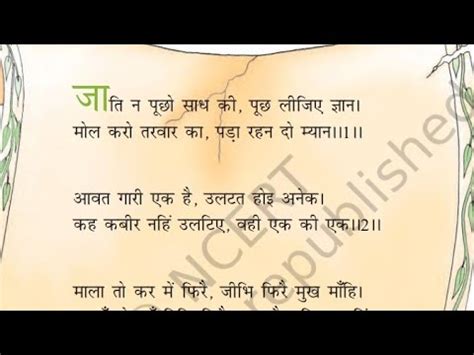 जाति न पूछो साध की, पूछ लीजिए ज्ञान।
मोल करो तरवार का, पड़ा रहन दो म्यान।।1।।
आवत गारी एक है, उलटत होइ अनेक।
कह कबीर नहिं उलटिए, वही एक की एक।।2।।
माला तो कर में फिरै, जीभि फिरै मुख माँहि।
NCERT
republished